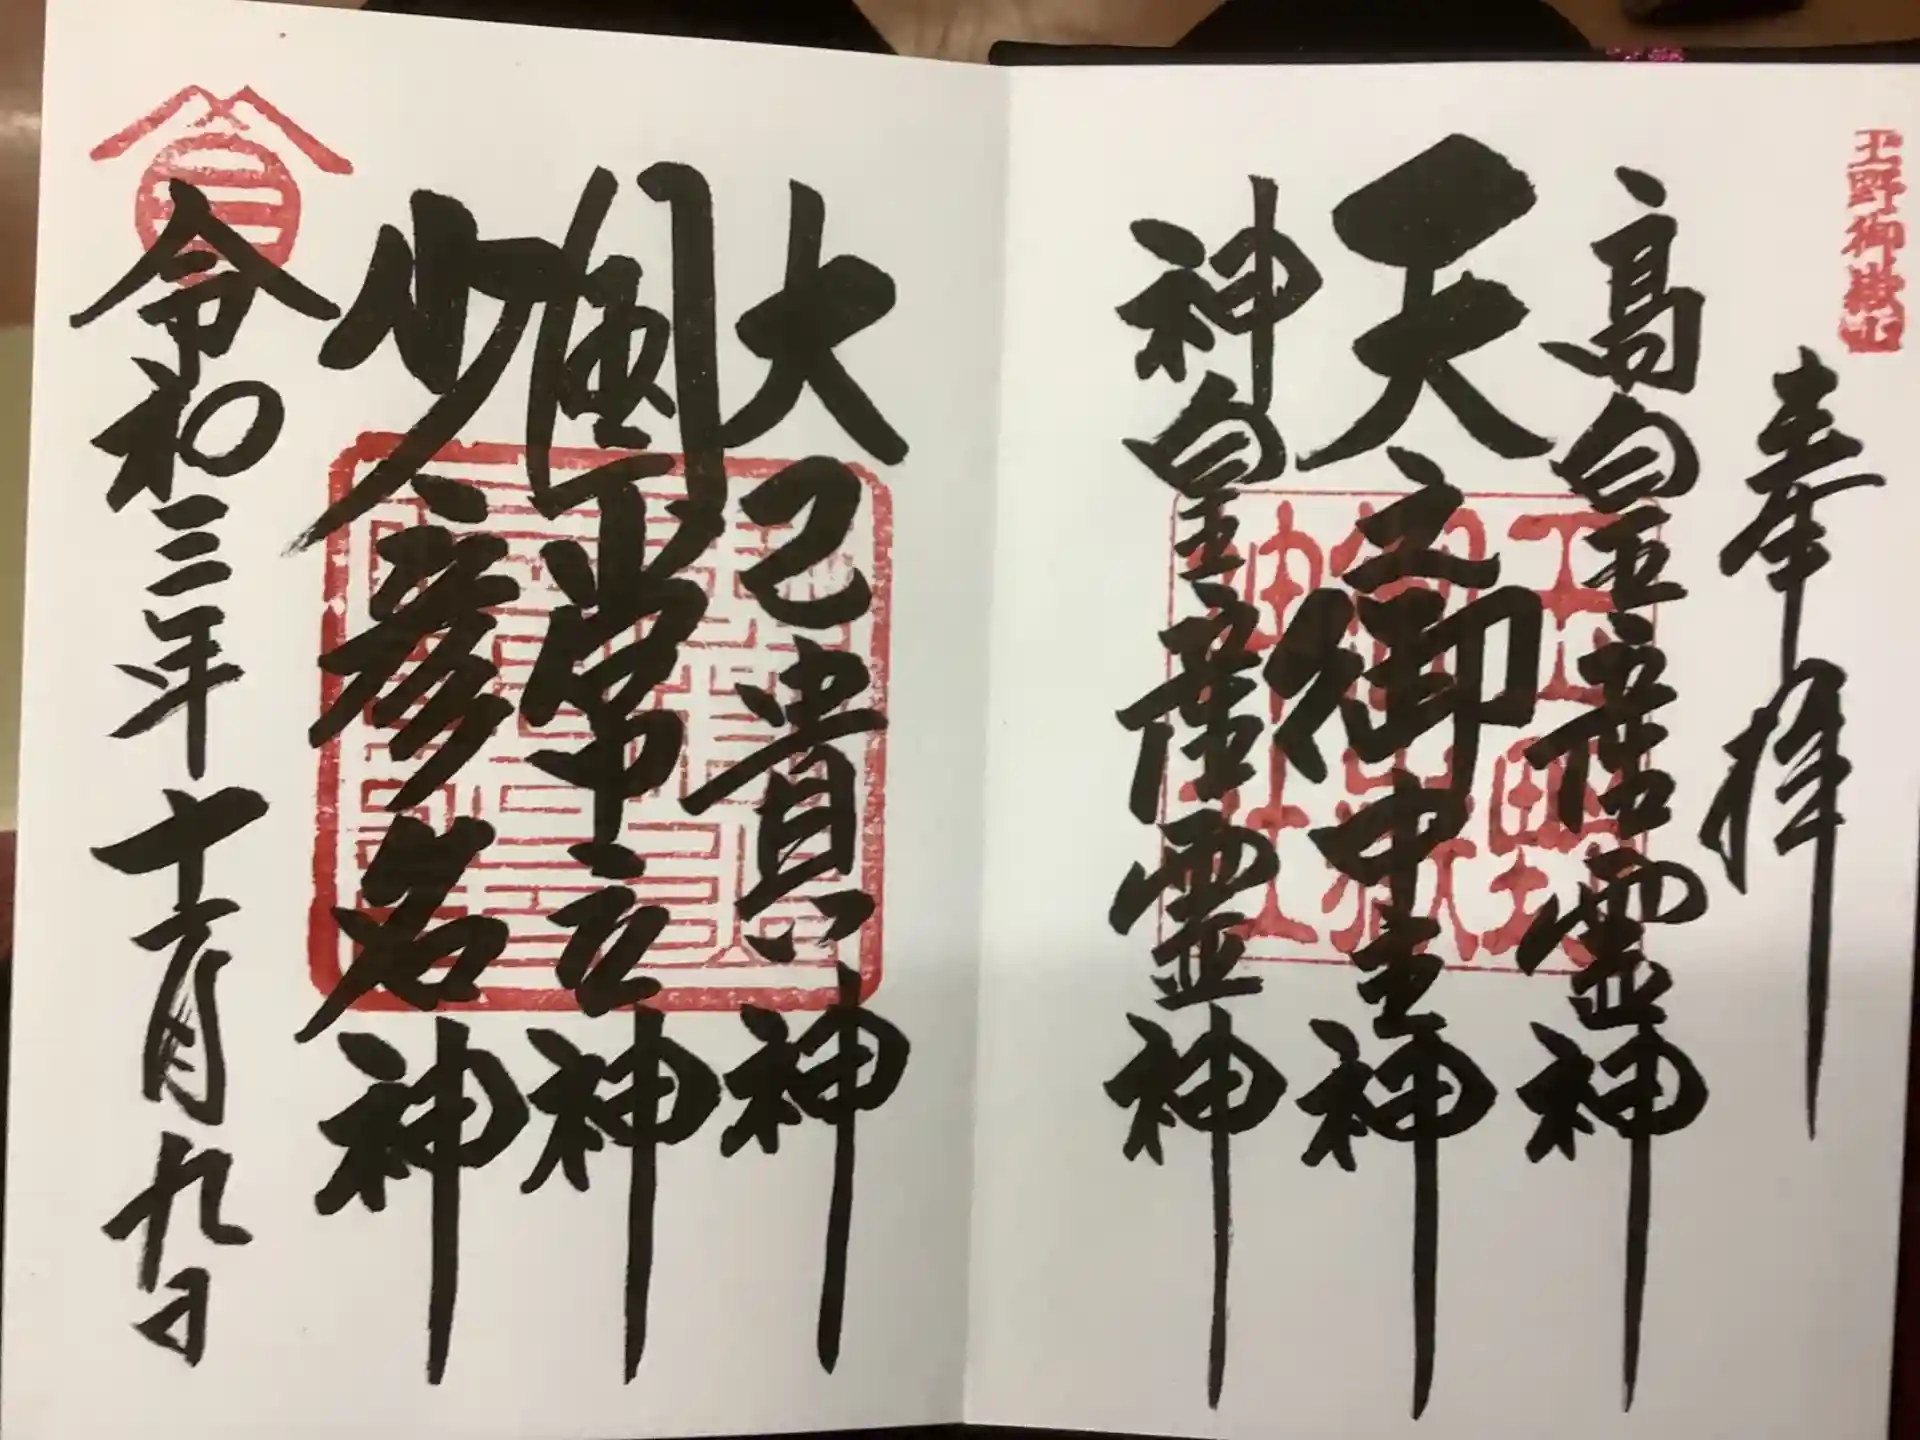 玉野御嶽山
奉拝
高皇産霊神
天之御中主神
神皇産霊神
玉野御嶽神社
大己貴神
國常立神
少彦名神
令和三年十一月九日